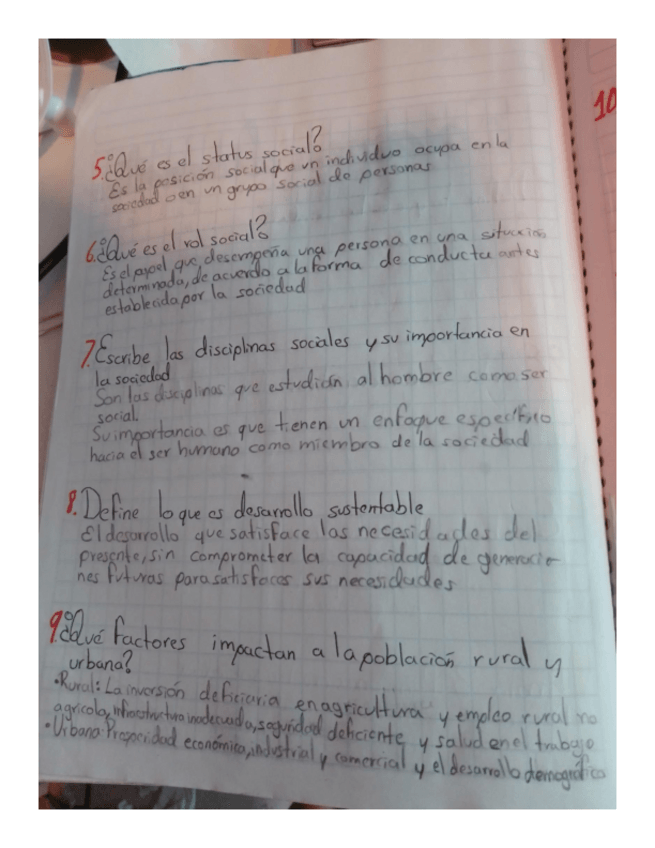 10
5.¿Qué es el status social?
Es la posición social que un individuo ocupa en la
sociedad o en un grupo social de personas
6.¿Qué es el rol social?
Es el papel que desempeña una persona en una situación
determinada, de acuerdo a la forma de conducta antes
establecida por la sociedad
7.Escribe las disciplinas sociales y su importancia en
la sociedad
Son las disciplinas que estudian al hombre como ser
social.
Su importancia es que tienen un enfoque específico
hacia el ser humano como miembro de la sociedad
8.Define lo que es desarrollo sustentable
El desarrollo que satisface las necesidades del
presente, sin comprometer la capacidad de generacio-
nes futuras para satisfacer sus necesidades
9.¿Qué factores impactan a la población rural y
urbana?
•Rural: La inversión deficiaria en agricultura y empleo rural no
agricola, infraestructura inadecuada, seguridad deficiente y salud en el trabajo
•Urbana: Prosperidad económica, industrial y comercial y el desarrollo demográfico